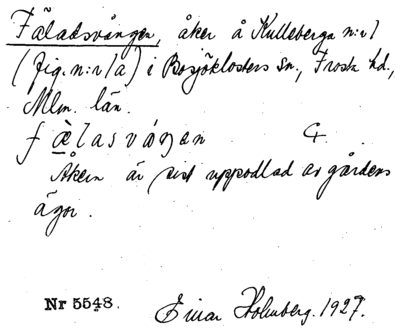 Fäladsvången, åker å Kulleberga n:r 1
(fig. n:r 1a) i Bosjöklosters sn., Frosta hd.,
Mlm. län.
fælasváŋən G.
Åkern är sist uppodlad av gårdens
ägor.
Nr 5548.
Einar Holmberg. 1927.